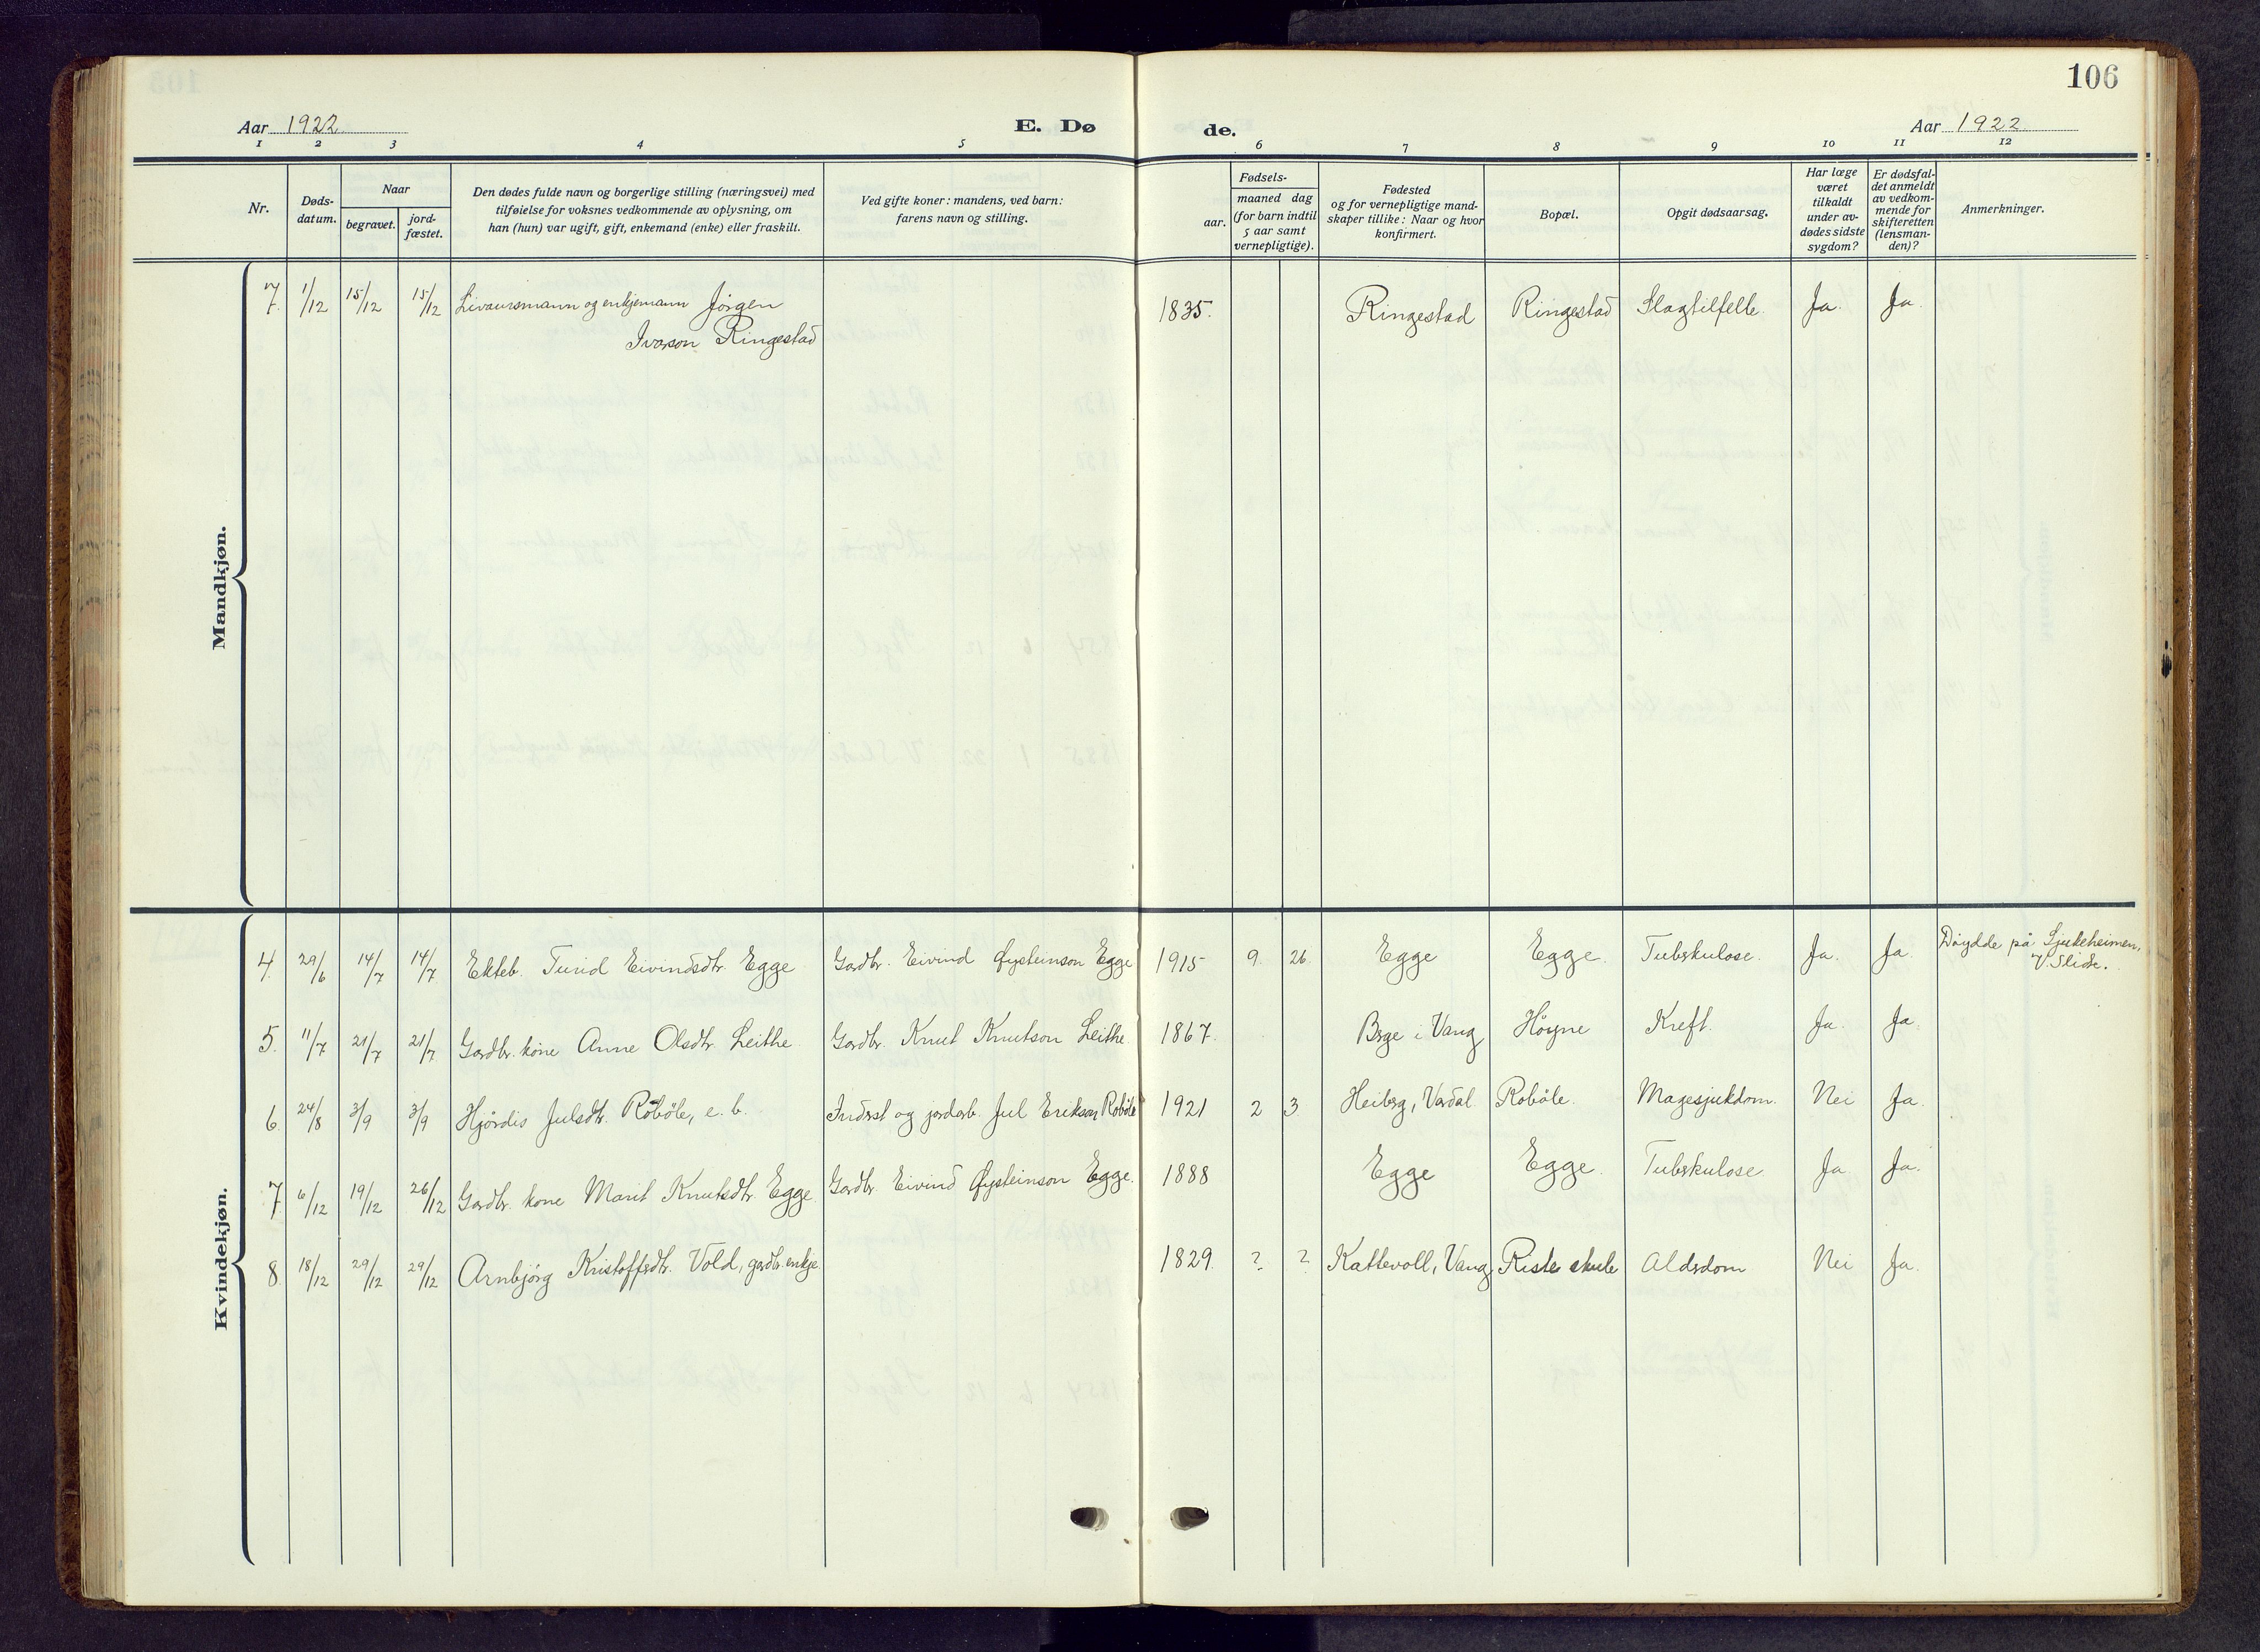 106
Aar 1922
E. Dø
de.
Aar 1922
1 2 3 4 5 6 7 8 9 10 11 12
Nr.
Døds-
datum.
Naar
begravet.
jord-
fæstet.
Den dødes fulde navn og borgerlige stilling (næringsvei) med
tilføielse for voksnes vedkommende av oplysning, om
han (hun) var ugift, gift, enkemand (enke) eller fraskilt.
Ved gifte koner: mandens, ved barn:
farens navn og stilling.
Fødsels-
aar.
maaned dag
(for barn indtil
5 aar samt
vernepligtige).
Fødested
og for vernepligtige mand-
skaper tillike: Naar og hvor
konfirmert.
Bopæl.
Opgit dødsaarsag.
Har læge
været
tilkaldt
under av-
dødes sidste
sygdom?
Er dødsfal-
det anmeldt
av vedkom-
mende for
skifteretten
(lensman-
den)?
Anmerkninger.
Mandkjøn.
7. 1/12 15/12 15/12 Livaursmann og enkjemann Jørgen 1835. Ringestad Ringestad Slagtilfelle. Ja. Ja.
Ivarson Ringestad
Kvindekjøn.
4. 29/6 14/7 14/7 Ekteb. Turid Eivindsdtr. Egge Gardbr. Eivind Øysteinson Egge 1915 9. 26 Egge Egge. Tuberkulose. Ja. Ja. Døydde på Sjukeheimen,
V. Slidre.
5. 11/7 21/7 21/7 Gardbr. kone Anne Olsdtr. Leithe. Gardbr. Knut Knutson Leithe. 1867. Berge i Vang Høyne Kreft. Ja. Ja.
6. 24/8 3/9 3/9 Hjørdis Julsdtr. Robøle, e. b. Inderst og jordarb. Jul Erikson Robøle 1921 2 3 Heiberg, Vardal Robøle. Magesjukdom. Nei Ja.
7. 6/12 19/12 26/12 Gardbr. kone Marit Knutsdtr. Egge. Gardbr. Eivind Øysteinson Egge. 1888 Egge Egge. Tuberkulose Ja Ja.
8. 18/12 29/12 29/12 Arnbjørg Kristoffsdtr. Vold, gardbr. enkje 1829. ? ? Kattevoll, Vang Riste skule Alderdom Nei Ja.